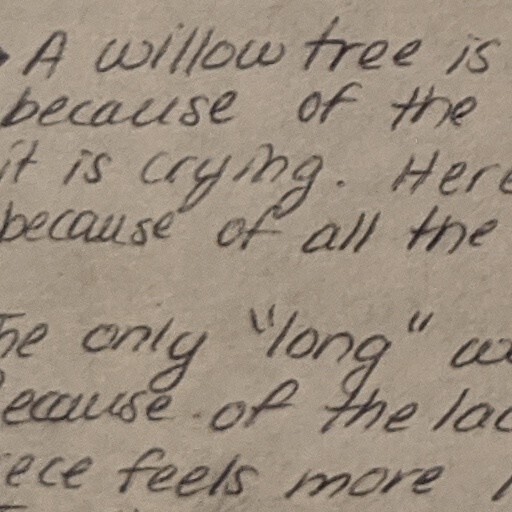 A willow tree is
because of the
it is crying. Here
because of all the
The only "long"
because of the
feels more